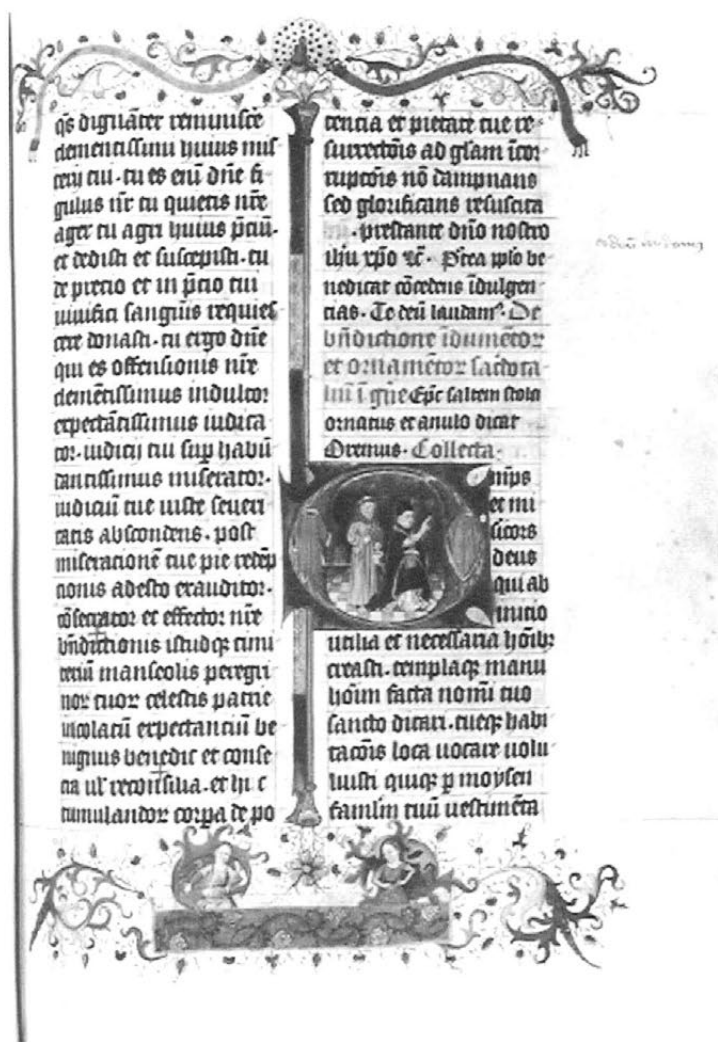 q̄s dignāter reminisce
clementissimi huius mis
terij tui · tu es enī dn̄e fi
gulus nr̄ tu quietis nr̄e
ager tu agri huius p̄ciū ·
et dedisti et suscepisti · tu
de precio et in p̄cio tui
uiuifici sanguīs requies
cere donasti · tu ergo dn̄e
qui es offensionis nr̄e
clemētissimus indultor
expectātissimus iudica
tor · iudicij tui sup habū
dantissimus miserator ·
iudiciū tue iuste seueri
tatis abscondens · post
miseratione tue pie redēp
tionis adesto exauditor ·
cōsecrator et effector nr̄e
bn̄dictionis istudq; cimi
teriū manseolis peregri
nor tuor celestis patrie
incolatū expectanciū be
nignus benedic et conse
cra ul' reconsilia · et hi c
tumulandor corpa de po
tencia et pietate tue re
surrectōis ad gl̄am īcor
rupcōis nō dampnans
sed glorificans resuscita
· prestante dn̄o nostro
ihū xp̄o ⁊c̄ · P̄tea pp̄lo be
nedicat cōcedens īdulgen
cias · Te deū laudam⁹ · De
bn̄dictione īdumētor
et ornamētor sacdota
liū ī gn̄e Ep̄c saltem stola
ornatus et anulo dicat
Oremus · Collecta ·
Omp̄s
et mi
sicors
deus
qui ab
initio
utilia et necessaria hoīb;
creasti · templaq; manu
hoīm facta nomī tuo
sancto dicari · tueq; habi
tacōis loca uocare uolu
luisti quiq; p moysen
famlm tuū uestimēta